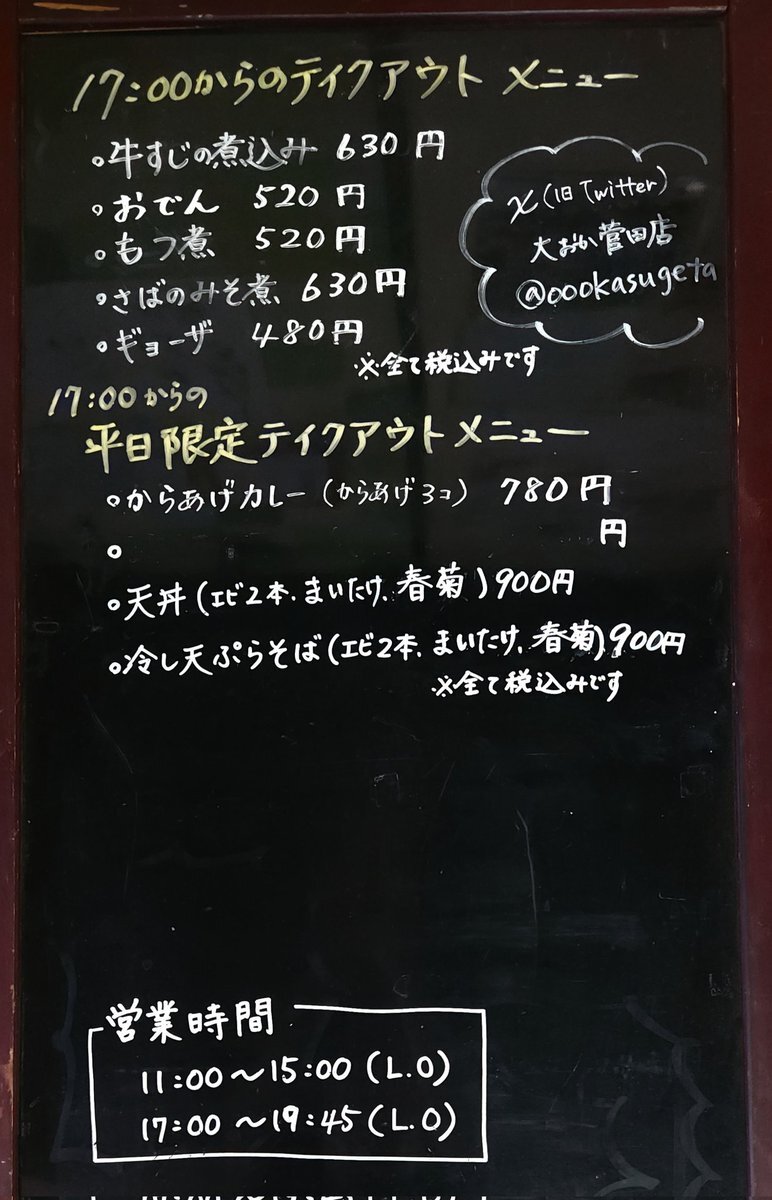 17:00からのテイクアウト メニュー
。牛すじの煮込み 630円
。おでん 520円
。もつ煮 520円
。さばのみそ煮 630円
。ギョーザ 480円
※全て税込みです
X(旧Twitter)
大おか菅田店
@oookasugeta
17:00からの
平日限定テイクアウトメニュー
。からあげカレー(からあげ3コ) 780円
。 円
。天丼(エビ2本、まいたけ、春菊)900円
。冷し天ぷらそば(エビ2本、まいたけ、春菊)900円
※全て税込みです
営業時間
11:00～15:00(L.O)
17:00～19:45(L.O)